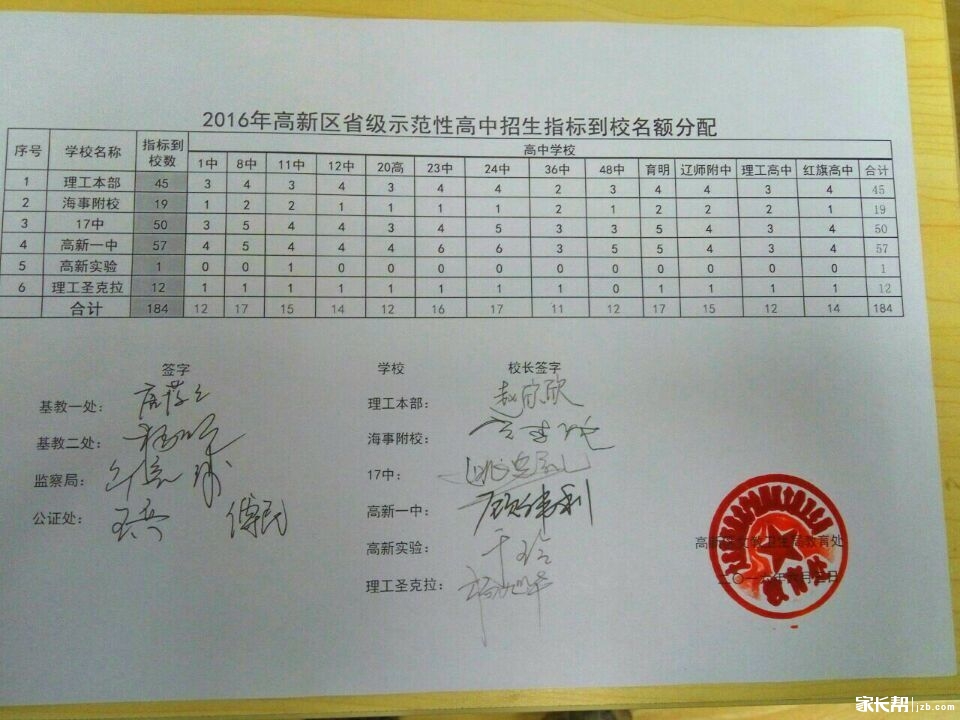 2016年高新区省级示范性高中招生指标到校名额分配
序号 学校名称 指标到校数 高中学校
1中 8中 11中 12中 20高 23中 24中 36中 48中 育明 辽师附中 理工高中 红旗高中 合计
1 理工本部 45 3 4 3 4 3 4 4 2 3 4 4 3 4 45
2 海事附校 19 1 2 2 1 1 1 1 2 1 2 2 2 1 19
3 17中 50 3 5 4 4 3 4 5 3 3 5 4 3 4 50
4 高新一中 57 4 5 4 4 4 6 6 3 5 5 4 3 4 57
5 高新实验 1 0 0 1 0 0 0 0 0 0 0 0 0 0 1
6 理工圣克拉 12 1 1 1 1 1 1 1 1 0 1 1 1 1 12
合计 184 12 17 15 14 12 16 17 11 12 17 15 12 14 184
签字 学校 校长签字
基教一处： 理工本部：
基教二处： 海事附校：
监察局： 17中：
公证处： 高新一中：
高新实验：
理工圣克拉：
家长帮 jzb.com